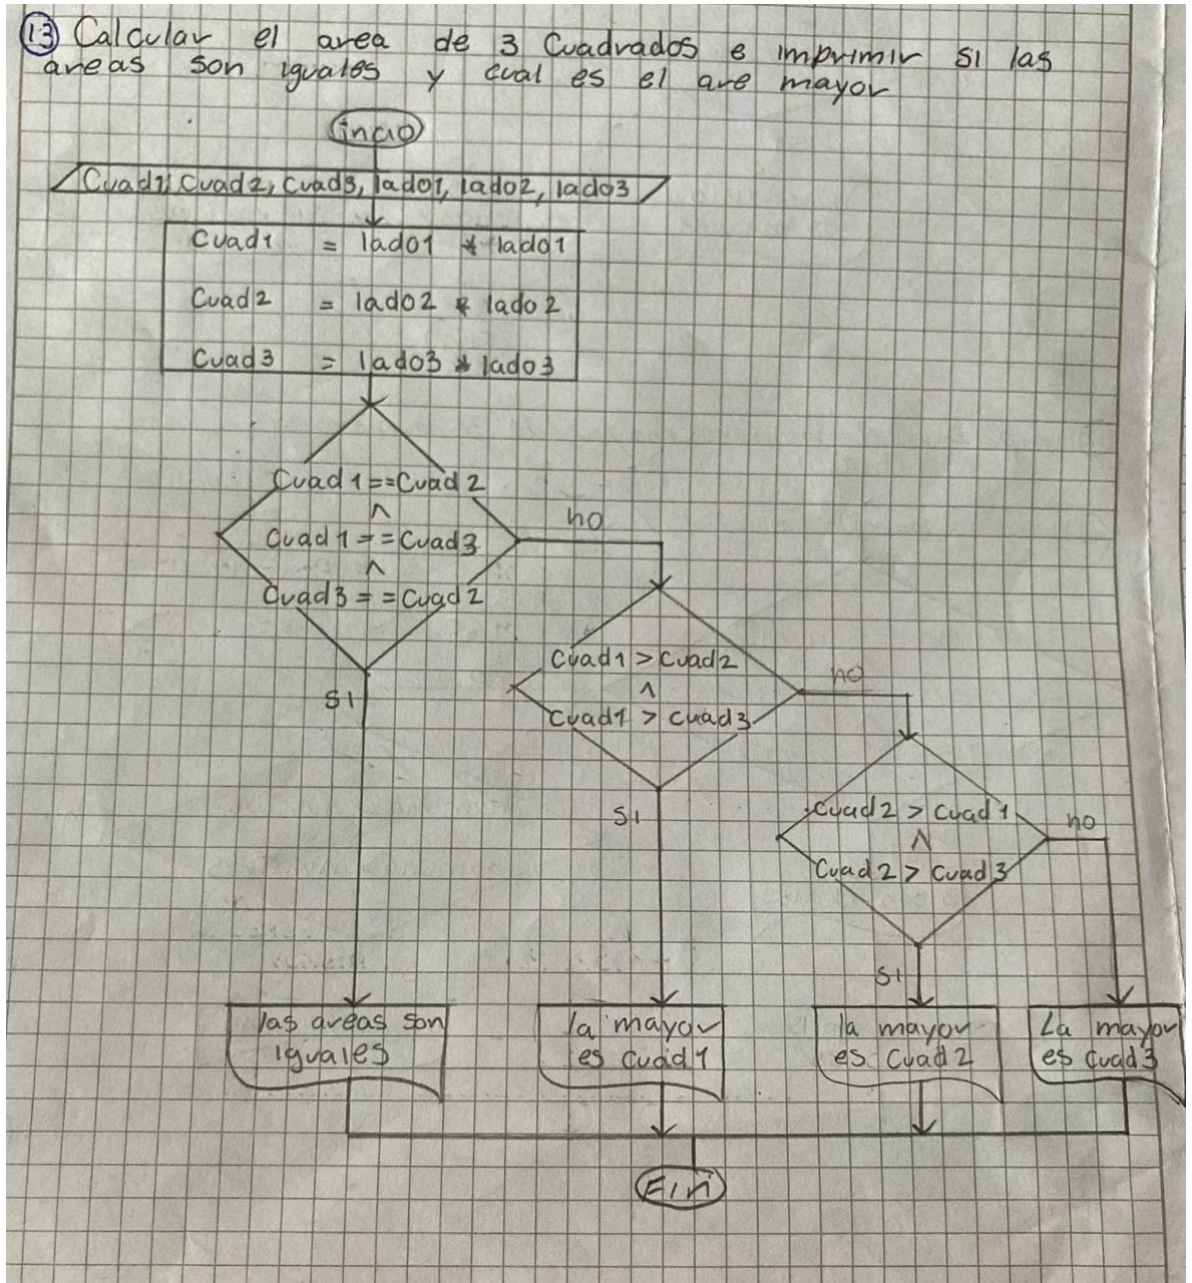 13 Calcular el area de 3 Cuadrados e imprimir si las
areas son iguales y cual es el are mayor
incio
Cuad1, Cuad2, Cuad3, lado1, lado2, lado3
Cuad1 = lado1 * lado1
Cuad2 = lado2 * lado2
Cuad3 = lado3 * lado3
Cuad1 == Cuad2
^
Cuad1 == Cuad3
^
Cuad3 == Cuad2
no
SI
Cuad1 > Cuad2
^
Cuad1 > Cuad3
no
SI
Cuad2 > Cuad1
^
Cuad2 > Cuad3
no
SI
las areas son
iguales
la mayor
es cuad1
la mayor
es Cuad2
La mayor
es cuad3
Fin